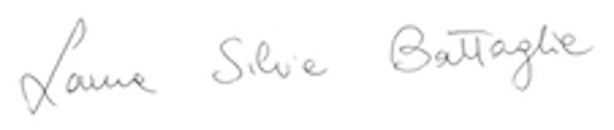 Laura Silvia Battaglia